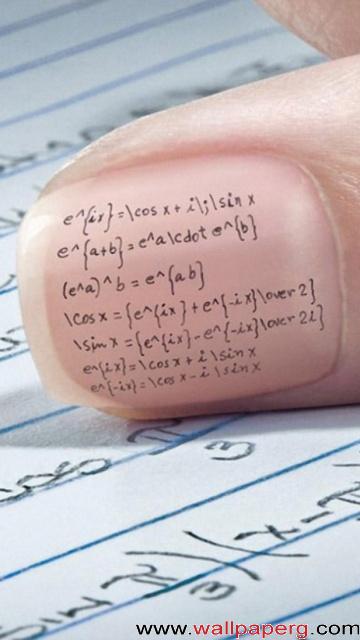 e^{ix}=\cos x + i\;\sin x
e^{a+b}=e^a\cdot e^{b}
(e^a)^b = e^{ab}
\cos x = {e^{ix} + e^{-ix}\over 2}
\sin x = {e^{ix} - e^{-ix}\over 2i}
e^{ix}=\cos x + i \sin x
e^{-ix}=\cos x - i \sin x
www.wallpaperg.com